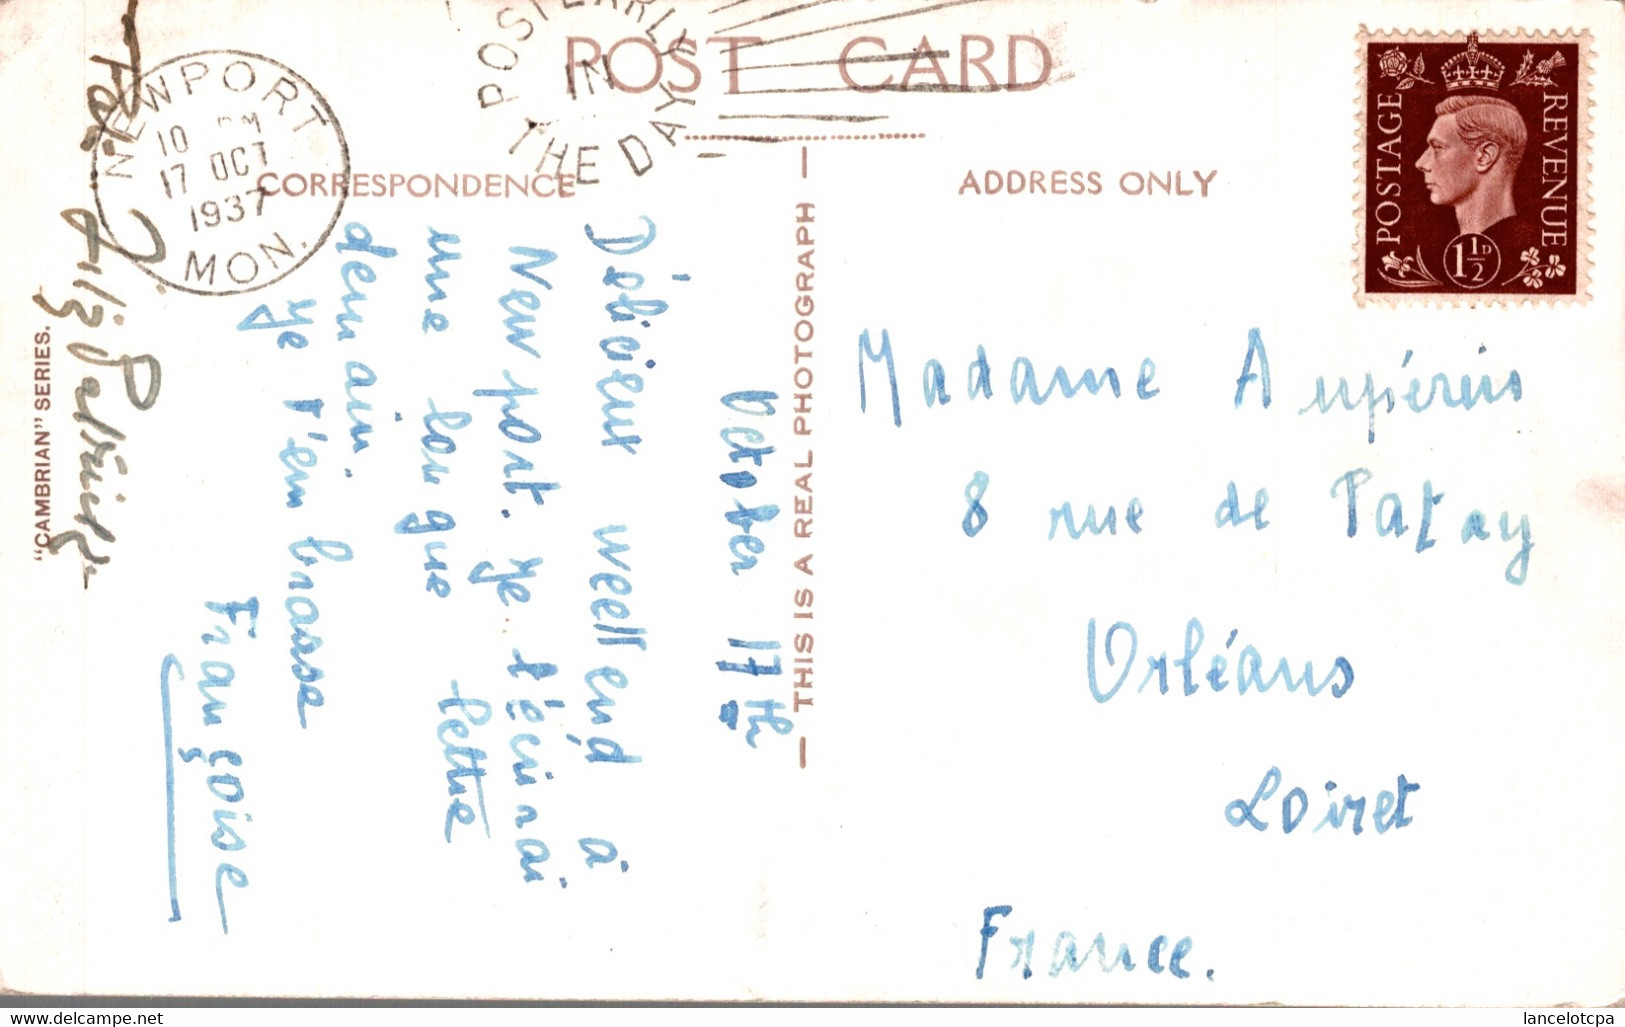 POST CARD
POST EARLY
IN
THE DAY
NEWPORT
10 PM
17 OCT
1937
MON.
CORRESPONDENCE
ADDRESS ONLY
POSTAGE REVENUE
1½D
October 17th
Délicieux weekend à
Newport. Je t'écrirai
une longue lettre
demain.
Je t'embrasse
Françoise
"CAMBRIAN" SERIES.
THIS IS A REAL PHOTOGRAPH
Madame
8 rue de Patay
Orléans
Loiret
France.
delcampe.net
lancelotcpa